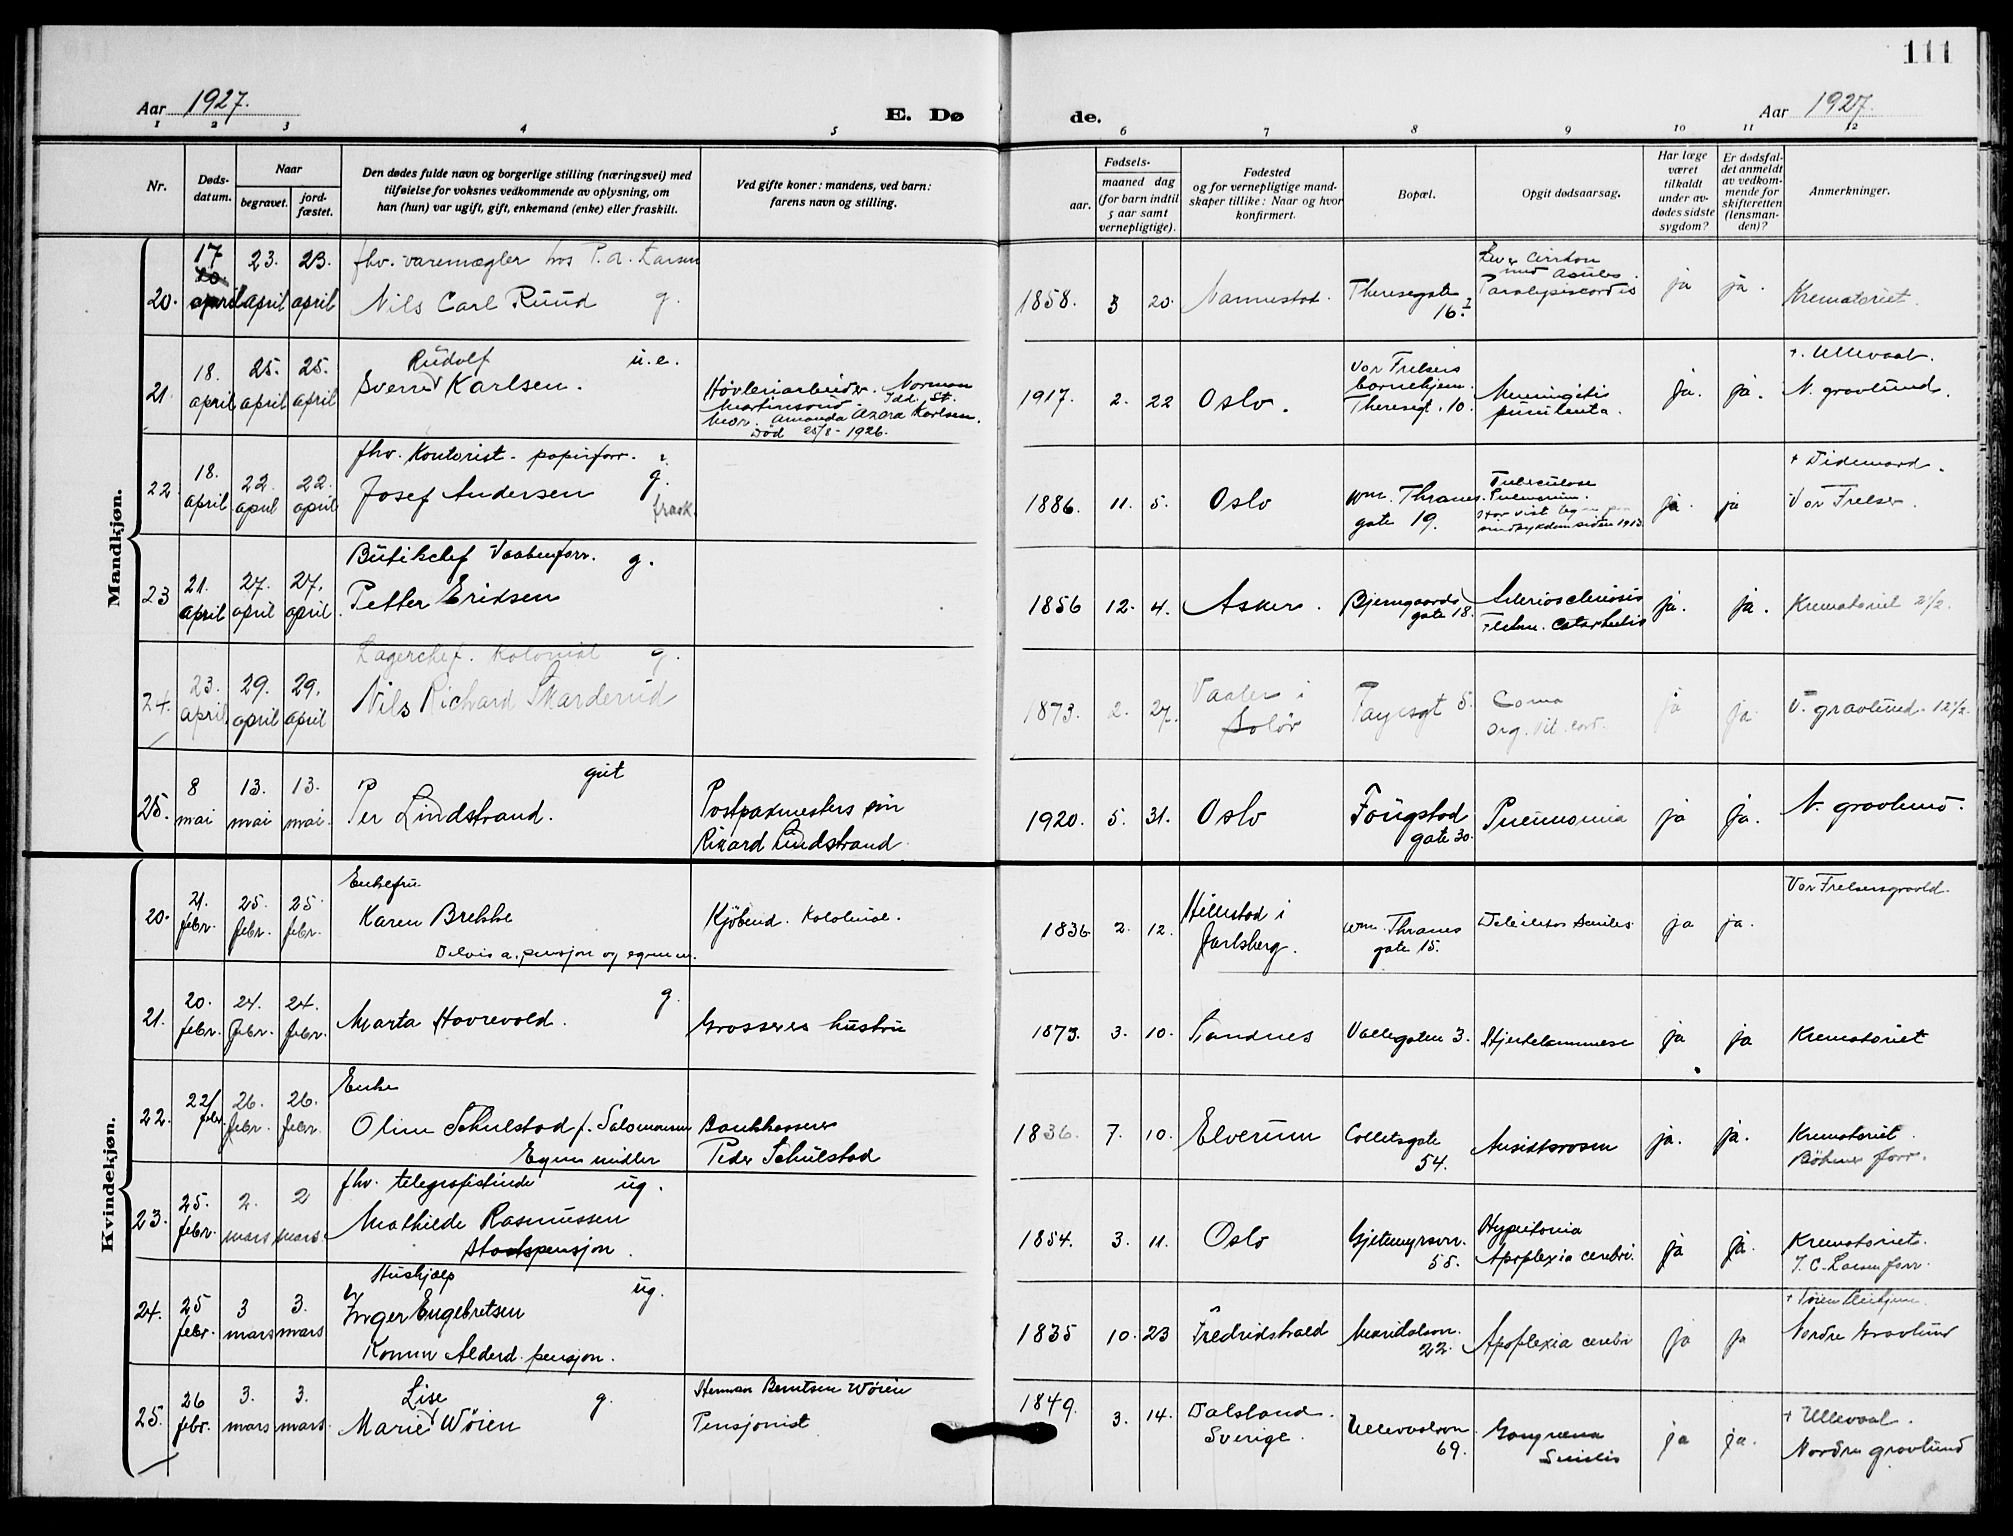 111
Aar 1927. E. Dø de. Aar 1927.
1 2 3 4 5 6 7 8 9 10 11 12
Nr. Døds-datum. Naar begravet. jord-fæstet. Den dødes fulde navn og borgerlige stilling (næringsvei) med tilføielse for voksnes vedkommende av oplysning, om han (hun) var ugift, gift, enkemand (enke) eller fraskilt. Ved gifte koner: mandens, ved barn: farens navn og stilling. Fødsels- aar. maaned dag (for barn indtil 5 aar samt vernepligtige). Fødested og for vernepligtige mandskaper tillike: Naar og hvor konfirmert. Bopæl. Opgit dødsaarsag. Har læge været tilkaldt under avdødes sidste sygdom? Er dødsfaldet anmeldt av vedkommende for skifteretten (lensmanden)? Anmerkninger.
Mandkjøn.
20. 17 april 23. april 23. april fhv. varemægler hos P. A. Larsen Nils Carl Ruud g. 1858. 3 20. Nannestad. Theresegate 16 I Paralysis cordis ja ja. Krematoriet.
21. 18. april 25. april 25. april Sverre Rudolf Karlsen. u.e. Høvleriarbeider. Norman Martinsen Mor. Amanda Azora Karlsen. Død 25/8 - 1926. 1917. 2. 22 Oslo. Vor Frelsers barnehjem. Theresegt. 10. Meningitis purulenta. ja. ja. + Ullevaal. N. gravlund.
22. 18. april 22. april 22. april fhv. Kontorist - papirforr. Josef Andersen g. frask. 1886. 11. 5. Oslo Wm. Thranes gate 19. Tuberculose Pulmonum. ja. ja Vor Frelser.
23 21. april 27. april 27. april. Butikchef Vaabenforr. g. Petter Eriksen 1856 12. 4. Asker. Bjerregaards gate 18. Arteriosclerosis ja. ja. Krematoriet 2 1/2.
24. 23. april 29. april 29. april Lagerchef. Kolonial g. Nils Richard Skarderud 1873. 2. 27. Vaaler i Solør Fayesgt 5. Coma org. vit. cord. ja ja V. gravlund. 12 1/2.
25. 8 mai 13. mai 13. mai. gut Per Lindstrand. Postpakmesters søn Rikard Lindstrand. 1920. 5. 31. Oslo Fougstad gate 30. Pneumonia ja ja. N. gravlund.
Kvindekjøn.
20. 21. febr. 25. febr. 25. febr. Enkefru Karen Brekke Delvis a. pensjon og egne m. Kjøbmd. Kolonial. 1836 2. 12. Hillestad i Jarlsberg. Wm. Thranes gate 15. Debilitas senilis. ja ja. Vor Frelsersgravld.
21. 20. febr. 24. febr. 24. febr. Marta Havrevold. g. Grosseres hustru 1873. 3. 10. Sandnes Vallegaten 3. Hjertelammelse ja ja Krematoriet
22. 22/ febr. 26. febr. 26. febr. Enke Oline Schulstad f. Salomonsen Egne midler Bankkasserer Peder Schulstad 1836. 7. 10. Elverum Colletsgate 54. Ansiktsrosen ja. ja. Krematoriet. Böhmer forr.
23. 25. febr. 2. mars 2 mars. fhv. telegrafistinde ug. Mathilde Rasmussen Statspensjon. 1854. 3. 11. Oslo Gjetemyrsvn. 55. Hypertonia Apoplexia cerebri. ja ja. Krematoriet. J. C. Larsen forr.
24. 25 febr. 3 mars 3. mars Hushjælp ug. Inger Engebretsen Komm Alderd. pensjon. 1835 10. 23 Fredrikshald Maridalsvn. 22. Apoplexia cerebri ja ja Nordre Gravlund
25. 26 febr. 3. mars 3. mars. Marie Lise Wøien g. Herman Berntsen Wøien Pensjonist 1849. 3. 14. Dalsland. Sverige. Ullevaalsvn 69. Gangræna Senilis ja ja. + Ullevaal. Nordre gravlund